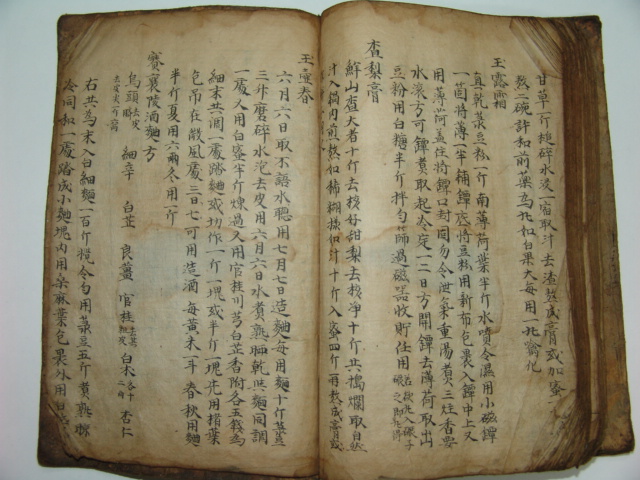 甘草一斤槌碎水浸一宿取汁去渣熬成膏或加蜜
熬二碗許和前藥為丸如白果大每用一丸噙化
玉露霜
真乾菉豆粉一斤 南薄荷葉半斤水噴令濕用小磁鐔
一箇將薄一半鋪鐔底將豆粉用新布包裹入鐔中上又
用薄荷盖住將鐔口封固勿令泄氣重湯煮三炷香要
水滾方可鐔煑取起冷定一二日方開鐔去薄荷取出
豆粉用白糖半斤拌勻篩過磁器收貯任用
查梨膏
鮮山查大者十斤去核好甜梨去核净十斤共搗爛取自然
汁入鍋内煎熬如稀糊樣如汁十斤入蜜四斤再熬成膏或
玉壺春
六月六日取不語水聽用七月七日造麯每用麵十斤菉豆
三升磨碎水泡去皮用六月六日水煑熟晾乾與麵同調
一處又用白蜜半斤煉過又用官桂川芎白芷香附各五錢為
細末共溷一處踏麯或切作一斤一塊或半斤一塊先用楮葉
包吊在厰風處三日七可用造酒 每黄米一斗 春秋用麯
半斤夏用六兩冬用一斤
賽襄陵酒麯方
烏頭 細辛 白芷 良薑 官桂 白朮 杏仁
右共為末入白細麵一百斤攪令勻用菉豆五斤煑熟晾
冷同和一處踏成小麯塊内用朵麻葉包裹外用